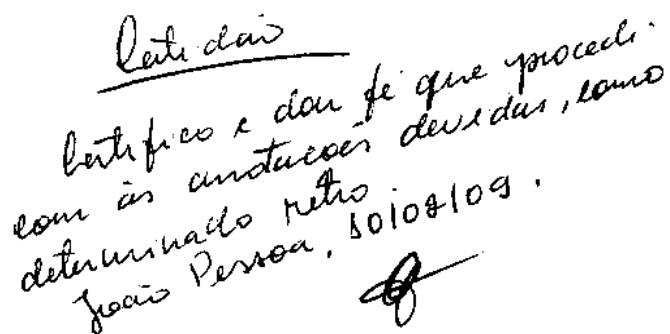 Certidão
Certifico e dou fé que procedi
com às anotações devidas, como
determinado retro.
João Pessoa, 10/08/09.